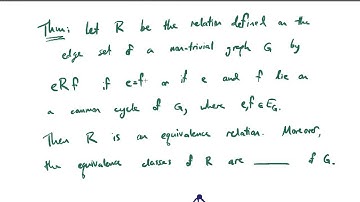 Thm: Let R be the relation defined on the
edge set of a non-trivial graph G by
eRf if e=f or if e and f lie on
a common cycle of G, where e,f ∈ E_G.
Then R is an equivalence relation. Moreover,
the equivalence classes of R are ______ of G.